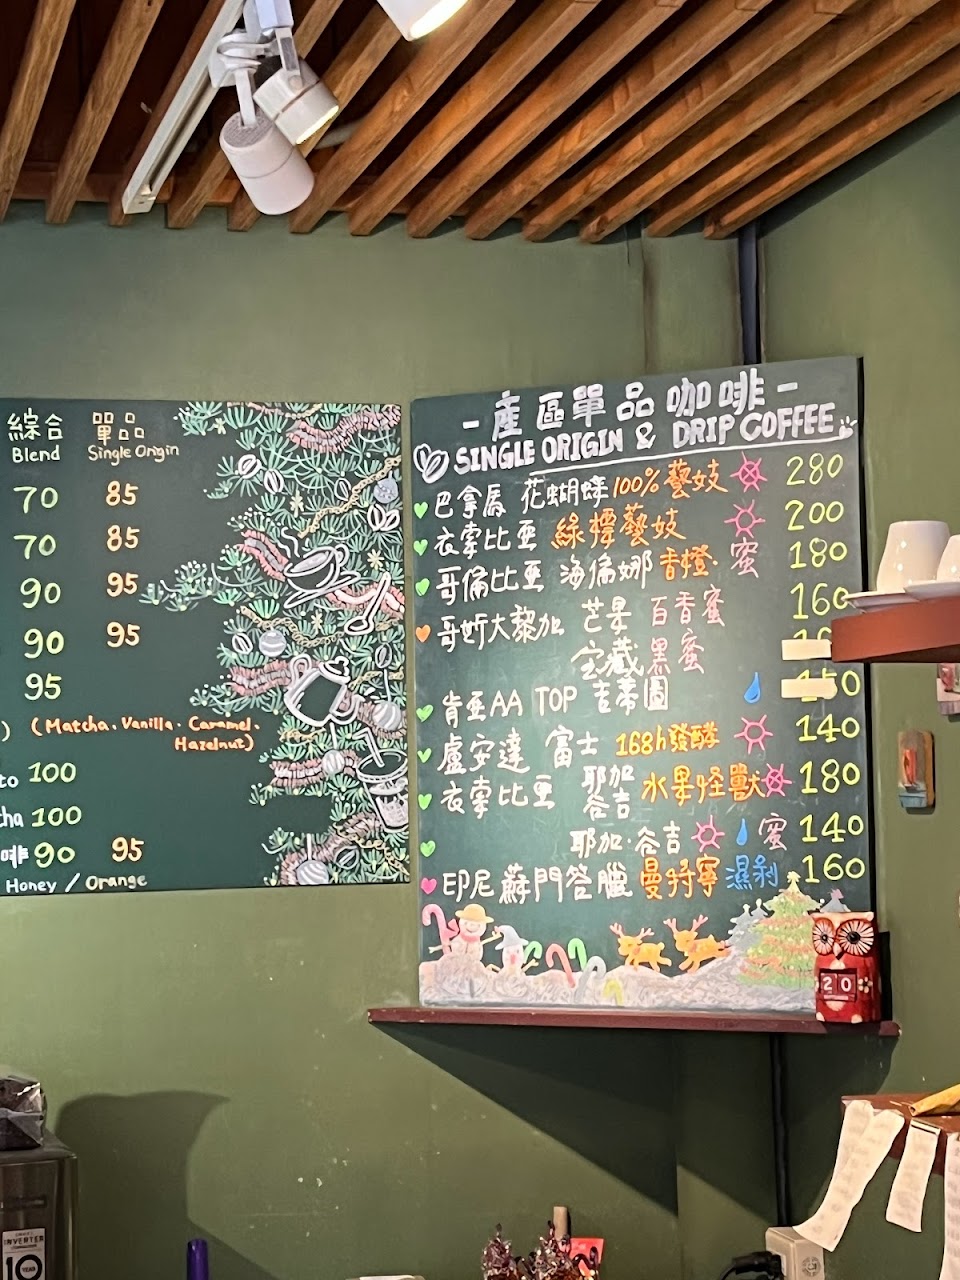 綜合 單品
Blend Single Origin
70 85
70 85
90 95
90 95
95
) (Matcha. Vanilla. Caramel.
Hazelnut)
to 100
cha 100
啡 90 95
Honey / Orange
-產區單品咖啡-
SINGLE ORIGIN & DRIP COFFEE
巴拿馬 花蝴蝶 100%藝妓 280
衣索比亞 綠標藝妓 200
哥倫比亞 海倫娜 香橙· 蜜 180
哥斯大黎加 芒果 百香蜜 160
宝藏 黑蜜
肯亞AA TOP 吉蒂圖 150
盧安達 富士 168h發酵 140
衣索比亞 耶加谷吉 水果怪獸 180
耶加·谷吉 蜜 140
印尼 蘇門答臘 曼特寧 濕剝 160
20
INVERTER
10